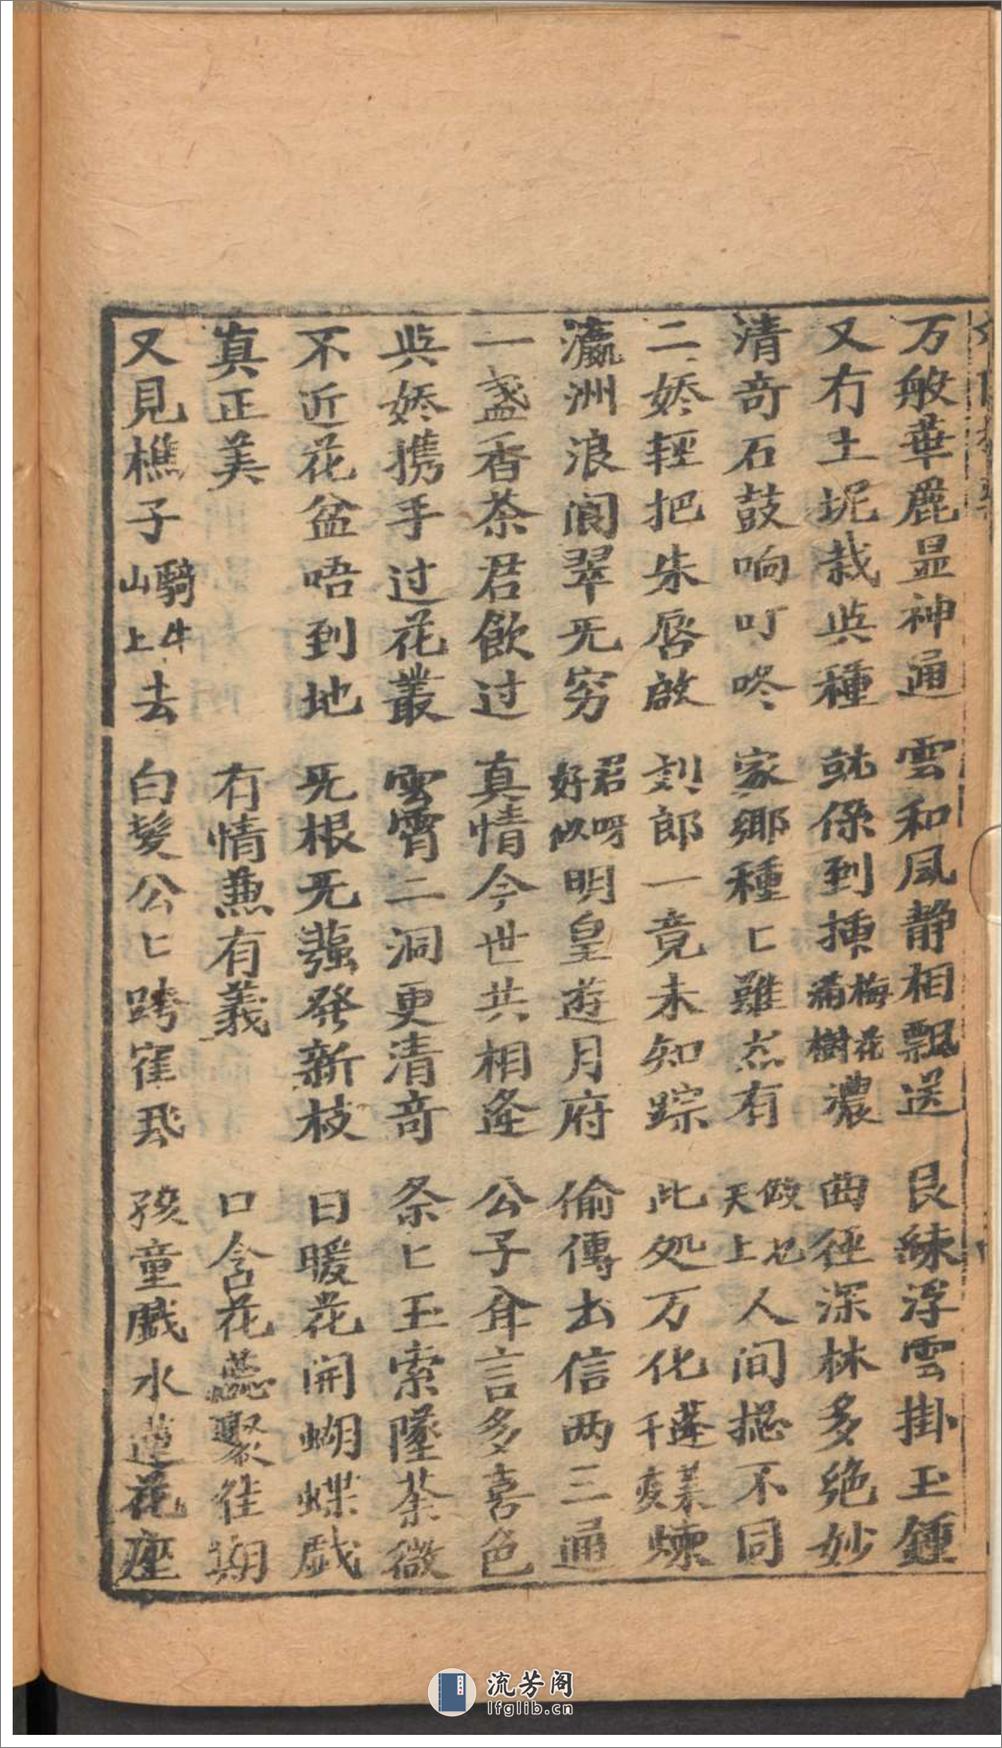 万般華麗显神通　雲和風静相飄送　艮絲浮雲掛玉鍾
又冇土坭栽与種　就係到揀梅花滿樹濃　曲徑深林多绝妙
清奇石鼓响叮咚　家鄉種匕雖杰有　做乜天上人間捴不同
二娇輕把朱唇啟　刘郎一竟未知踪　此处万化千変蓬萊煉
瀛洲浪阆翠旡穷　君呀好似明皇遊月府　偷傳出信两三通
一盏香茶君飲过　真情今世共相逢　公子耸言多喜色
与娇携手过花叢　雲霄二洞更清奇　条匕玉索墜荼薇
不近花盆唔到地　旡根旡蕴發新枝　日暖花開蝴蝶戯
真正美　有情兼有義　口含花蕊聚佳期
又見樵子騎牛山上去　白髪公匕跨寉飛　孩童戲水蓮花座
流芳阁
lfglib.cn